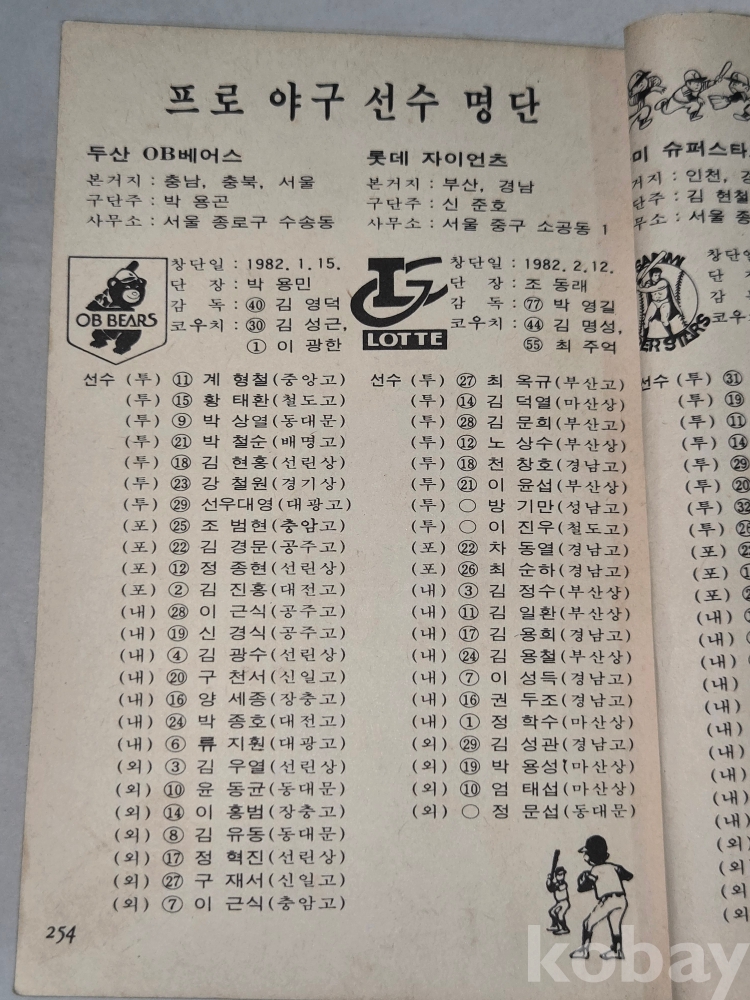 프로 야구 선수 명단
두산 OB베어스
본거지 : 충남, 충북, 서울
구단주 : 박 용곤
사무소 : 서울 종로구 수송동
OB BEARS
창단일 : 1982. 1. 15.
단 장 : 박 용민
감 독 : ㊵ 김 영덕
코우치 : ㉚ 김 성근,
① 이 광한
선수 (투) ⑪ 계 형철(중앙고)
(투) ⑮ 황 태환(철도고)
(투) ⑨ 박 상열(동대문)
(투) ㉑ 박 철순(배명고)
(투) ⑱ 김 현홍(선린상)
(투) ㉓ 강 철원(경기상)
(투) ㉙ 선우대영(대광고)
(포) ㉕ 조 범현(충암고)
(포) ㉒ 김 경문(공주고)
(포) ⑫ 정 종현(선린상)
(포) ② 김 진홍(대전고)
(내) ㉘ 이 근식(공주고)
(내) ⑲ 신 경식(공주고)
(내) ④ 김 광수(선린상)
(내) ⑳ 구 천서(신일고)
(내) ⑯ 양 세종(장충고)
(내) ㉔ 박 종호(대전고)
(내) ⑥ 류 지훤(대광고)
(외) ③ 김 우열(선린상)
(외) ⑩ 윤 동균(동대문)
(외) ⑭ 이 홍범(장충고)
(외) ⑧ 김 유동(동대문)
(외) ⑰ 정 혁진(선린상)
(외) ㉗ 구 재서(신일고)
(외) ⑦ 이 근식(충암고)
254
롯데 자이언츠
본거지 : 부산, 경남
구단주 : 신 준호
사무소 : 서울 중구 소공동 1
LOTTE
창단일 : 1982. 2. 12.
단 장 : 조 동래
감 독 : 77 박 영길
코우치 : ㊹ 김 명성,
55 최 주억
선수 (투) ㉗ 최 옥규(부산고)
(투) ⑭ 김 덕열(마산상)
(투) ㉘ 김 문희(부산고)
(투) ⑫ 노 상수(부산상)
(투) ⑱ 천 창호(경남고)
(투) ㉑ 이 윤섭(부산상)
(투) ○ 방 기만(성남고)
(투) ○ 이 진우(철도고)
(포) ㉒ 차 동열(경남고)
(포) ㉖ 최 순하(경남고)
(내) ③ 김 정수(부산상)
(내) ⑪ 김 일환(부산상)
(내) ⑰ 김 용희(경남고)
(내) ㉔ 김 용철(부산상)
(내) ⑦ 이 성득(경남고)
(내) ⑯ 권 두조(경남고)
(내) ① 정 학수(마산상)
(외) ㉙ 김 성관(경남고)
(외) ⑲ 박 용성(마산상)
(외) ⑩ 엄 태섭(마산상)
(외) ○ 정 문섭(동대문)
미 슈퍼스타
거지 : 인천,
단주 : 김 현철
무소 : 서울
STARS
창단일
단
감
코우치
선수 (투) ㉛
(투) ⑲
(투) ⑪
(투) ⑭
(투) ㉙
(투) ⑳
(투) ㉜
(투)
(포)
(포)
(포)
(내)
(내)
(내)
(내)
(내)
(내)
(내)
(내)
(내)
(내)
(외)
(외)
(외)
(외)
kobay